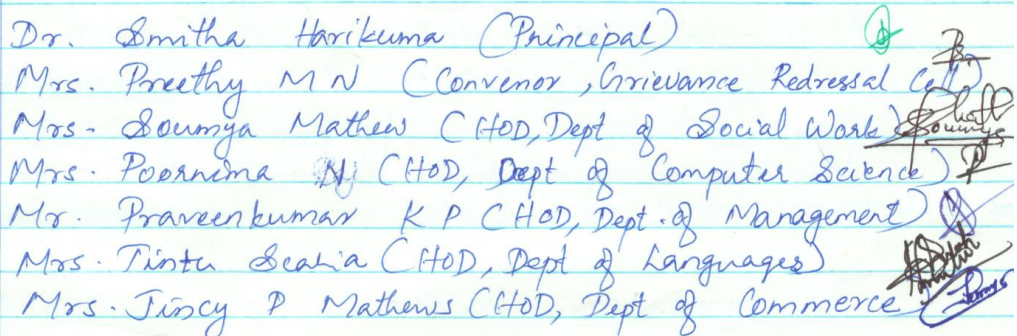 Dr. Smitha Harikuma (Principal)
Mrs. Preethy M N (Convenor, Grievance Redressal Cell)
Mrs. Soumya Mathew (HOD, Dept of Social Work)
Mrs. Poornima N (HOD, Dept of Computer Science)
Mr. Praveenkumar K P (HOD, Dept. of Management)
Mrs. Tintu Scaria (HOD, Dept of Languages)
Mrs. Jincy P Mathews (HOD, Dept of Commerce